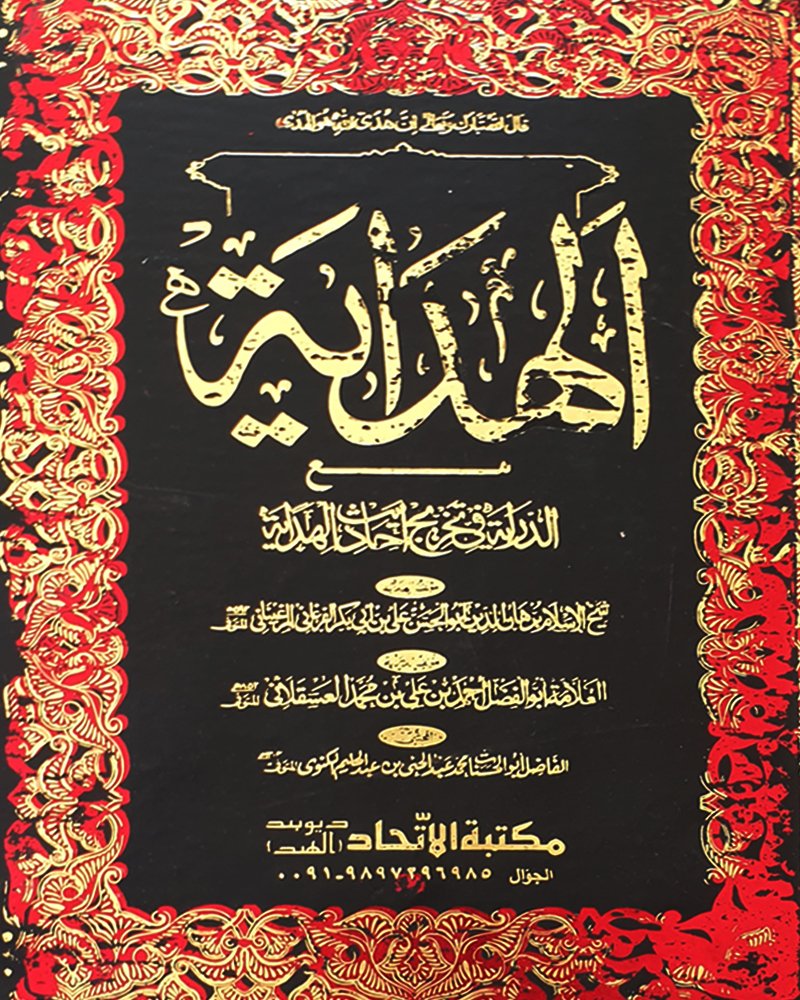 قال الله تبارك وتعالى ان هدى الله هو الهدى
الهداية
مع
الدراية في تخريج احاديث الهداية
شيخ الاسلام برهان الدين ابو الحسن علي بن ابي بكر الفرغاني المرغيناني المتوفى
العلامة ابو الفضل احمد بن علي بن محمد العسقلاني المتوفى ٨٥٢هـ
المحشي
الفاضل ابو الحسنات محمد عبد الحي بن عبد الحليم اللكنوي المتوفى
مكتبة الاتّحاد ديوبند (الهند)
الجوال ٠٠٩١-٩٨٩٧٢٩٦٩٨٥